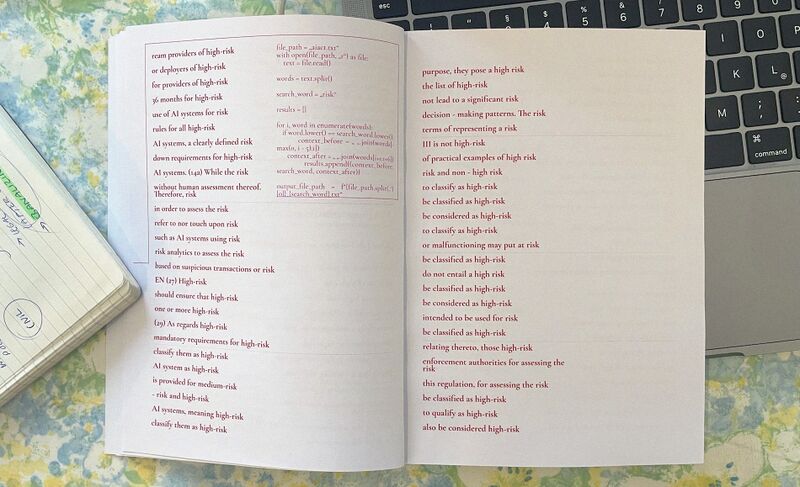 ream providers of high-risk
or deployers of high-risk
for providers of high-risk
36 months for high-risk
use of AI systems for risk
rules for all high-risk
AI systems, a clearly defined risk
down requirements for high-risk
AI systems. (14a) While the risk
without human assessment thereof.
Therefore, risk
in order to assess the risk
refer to nor touch upon risk
such as AI systems using risk
risk analytics to assess the risk
based on suspicious transactions or risk
EN (27) High-risk
should ensure that high-risk
one or more high-risk
(29) As regards high-risk
mandatory requirements for high-risk
classify them as high-risk
AI system as high-risk
is provided for medium-risk
- risk and high-risk
AI systems, meaning high-risk
classify them as high-risk
file_path = „aiact.txt“
with open(file_path, „r“) as file:
text = file.read()
words = text.split()
search_word = „risk“
results = []
for i, word in enumerate(words):
if word.lower() == search_word.lower():
context_before = „ „.join(words[
max(0, i - 5):i])
context_after = „ „.join(words[i+1:i+6])
results.append((context_before,
search_word, context_after))
output_file_path = f“{file_path.split(‚.‘)
[0]}_{search_word}.txt“
purpose, they pose a high risk
the list of high-risk
not lead to a significant risk
decision - making patterns. The risk
terms of representing a risk
III is not high-risk
of practical examples of high risk
risk and non - high risk
to classify as high-risk
be classified as high-risk
be considered as high-risk
to classify as high-risk
or malfunctioning may put at risk
be classified as high-risk
do not entail a high risk
be classified as high-risk
be considered as high-risk
intended to be used for risk
be classified as high-risk
relating thereto, those high-risk
enforcement authorities for assessing the
risk
this regulation, for assessing the risk
be classified as high-risk
to qualify as high-risk
also be considered high-risk
esc
$
4
%
5
6
&
7
8
K
L
M
;
⌘
command
CIVIL